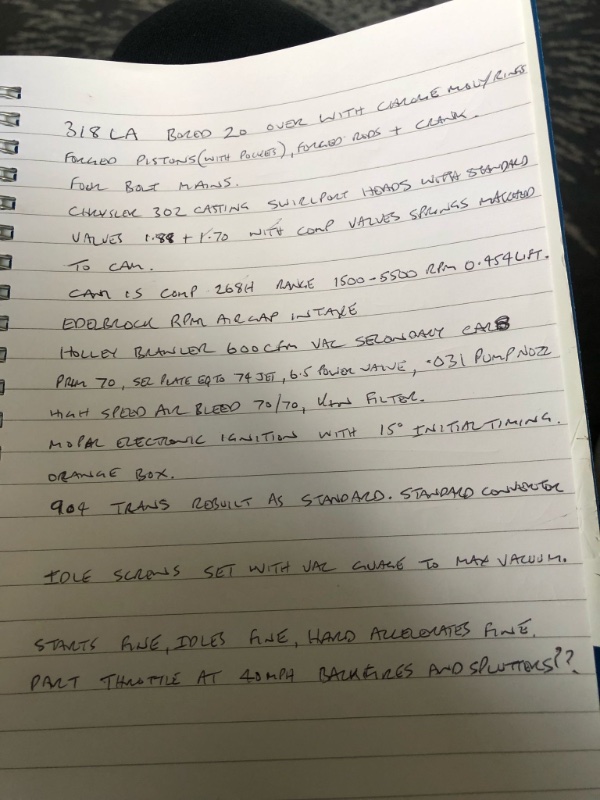 318 LA BORED 20 OVER WITH CHROME MOLY RINGS
FORGED PISTONS (WITH POCKET), FORGED RODS + CRANK.
FOUR BOLT MAINS.
CHRYSLER 302 CASTING SWIRLPORT HEADS WITH STANDARD
VALVES 1.88 + 1.70 WITH COMP VALVES SPRINGS MATCHED
TO CAM.
CAM IS COMP 268H RANGE 1500-5500 RPM 0.454 LIFT.
EDELBROCK RPM AIRGAP INTAKE
HOLLEY BRAWLER 600CFM VAC SECONDARY CARB
PRIM 70, SEC PLATE EQ TO 74 JET, 6.5 POWER VALVE, .031 PUMP NOZZ
HIGH SPEED AIR BLEED 70/70, K&N FILTER.
MOPAR ELECTRONIC IGNITION WITH 15° INITIAL TIMING.
ORANGE BOX.
904 TRANS REBUILT AS STANDARD. STANDARD CONVERTOR
IDLE SCREWS SET WITH VAC GUAGE TO MAX VACUUM.
STARTS FINE, IDLES FINE, HARD ACCELERATES FINE.
PART THROTTLE AT 40MPH BACKFIRES AND SPLUTTERS??